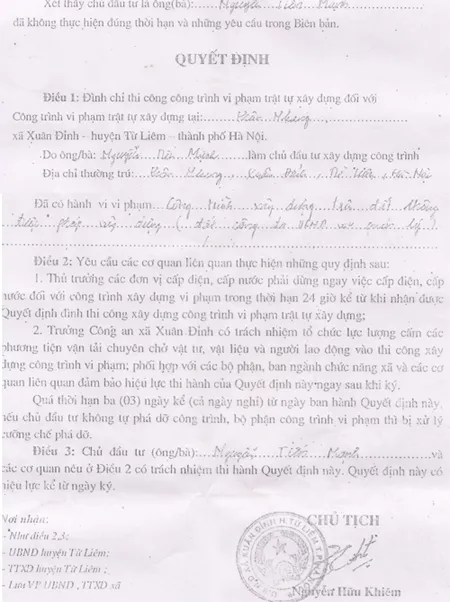 Xét thấy chủ đầu tư là ông(bà): Nguyễn Tiến Mạnh
đã không thực hiện đúng thời hạn và những yêu cầu trong Biên bản.
QUYẾT ĐỊNH
Điều 1: Đình chỉ thi công công trình vi phạm trật tự xây dựng đối với
Công trình vi phạm trật tự xây dựng tại: Xuân Nhang
xã Xuân Đỉnh – huyện Từ Liêm – thành phố Hà Nội.
Do ông/bà: Nguyễn Tiến Mạnh làm chủ đầu tư xây dựng công trình
Địa chỉ thường trú: Xuân Nhang, Xuân Đỉnh, Từ Liêm, Hà Nội
Đã có hành vi vi phạm: Công trình xây dựng trên đất không
được phép xây dựng (đất công do UBND xã quản lý)
Điều 2: Yêu cầu các cơ quan liên quan thực hiện những quy định sau:
1. Thủ trưởng các đơn vị cấp điện, cấp nước phải dừng ngay việc cấp điện, cấp
nước đối với công trình xây dựng vi phạm trong thời hạn 24 giờ kể từ khi nhận được
Quyết định đình thi công xây dựng công trình vi phạm trật tự xây dựng;
2. Trưởng Công an xã Xuân Đỉnh có trách nhiệm tổ chức lực lượng cấm các
phương tiện vận tải chuyên chở vật tư, vật liệu và người lao động vào thi công xây
dựng công trình vi phạm; phối hợp với các bộ phận, ban ngành chức năng xã và các cơ
quan liên quan đảm bảo hiệu lực thi hành của Quyết định này ngay sau khi ký.
Quá thời hạn ba (03) ngày kể (cả ngày nghỉ) từ ngày ban hành Quyết định này,
nếu chủ đầu tư không tự phá dỡ công trình, bộ phận công trình vi phạm thì bị xử lý
cưỡng chế phá dỡ.
Điều 3: Chủ đầu tư (ông/bà): Nguyễn Tiến Mạnh và
các cơ quan nêu ở Điều 2 có trách nhiệm thi hành Quyết định này. Quyết định này có
hiệu lực kể từ ngày ký.
Nơi nhận:
- Như điều 2,3;
- UBND huyện Từ Liêm;
- TTXD huyện Từ Liêm ;
- Lưu VP UBND , TTXD xã
CHỦ TỊCH
Nguyễn Hữu Khiêm